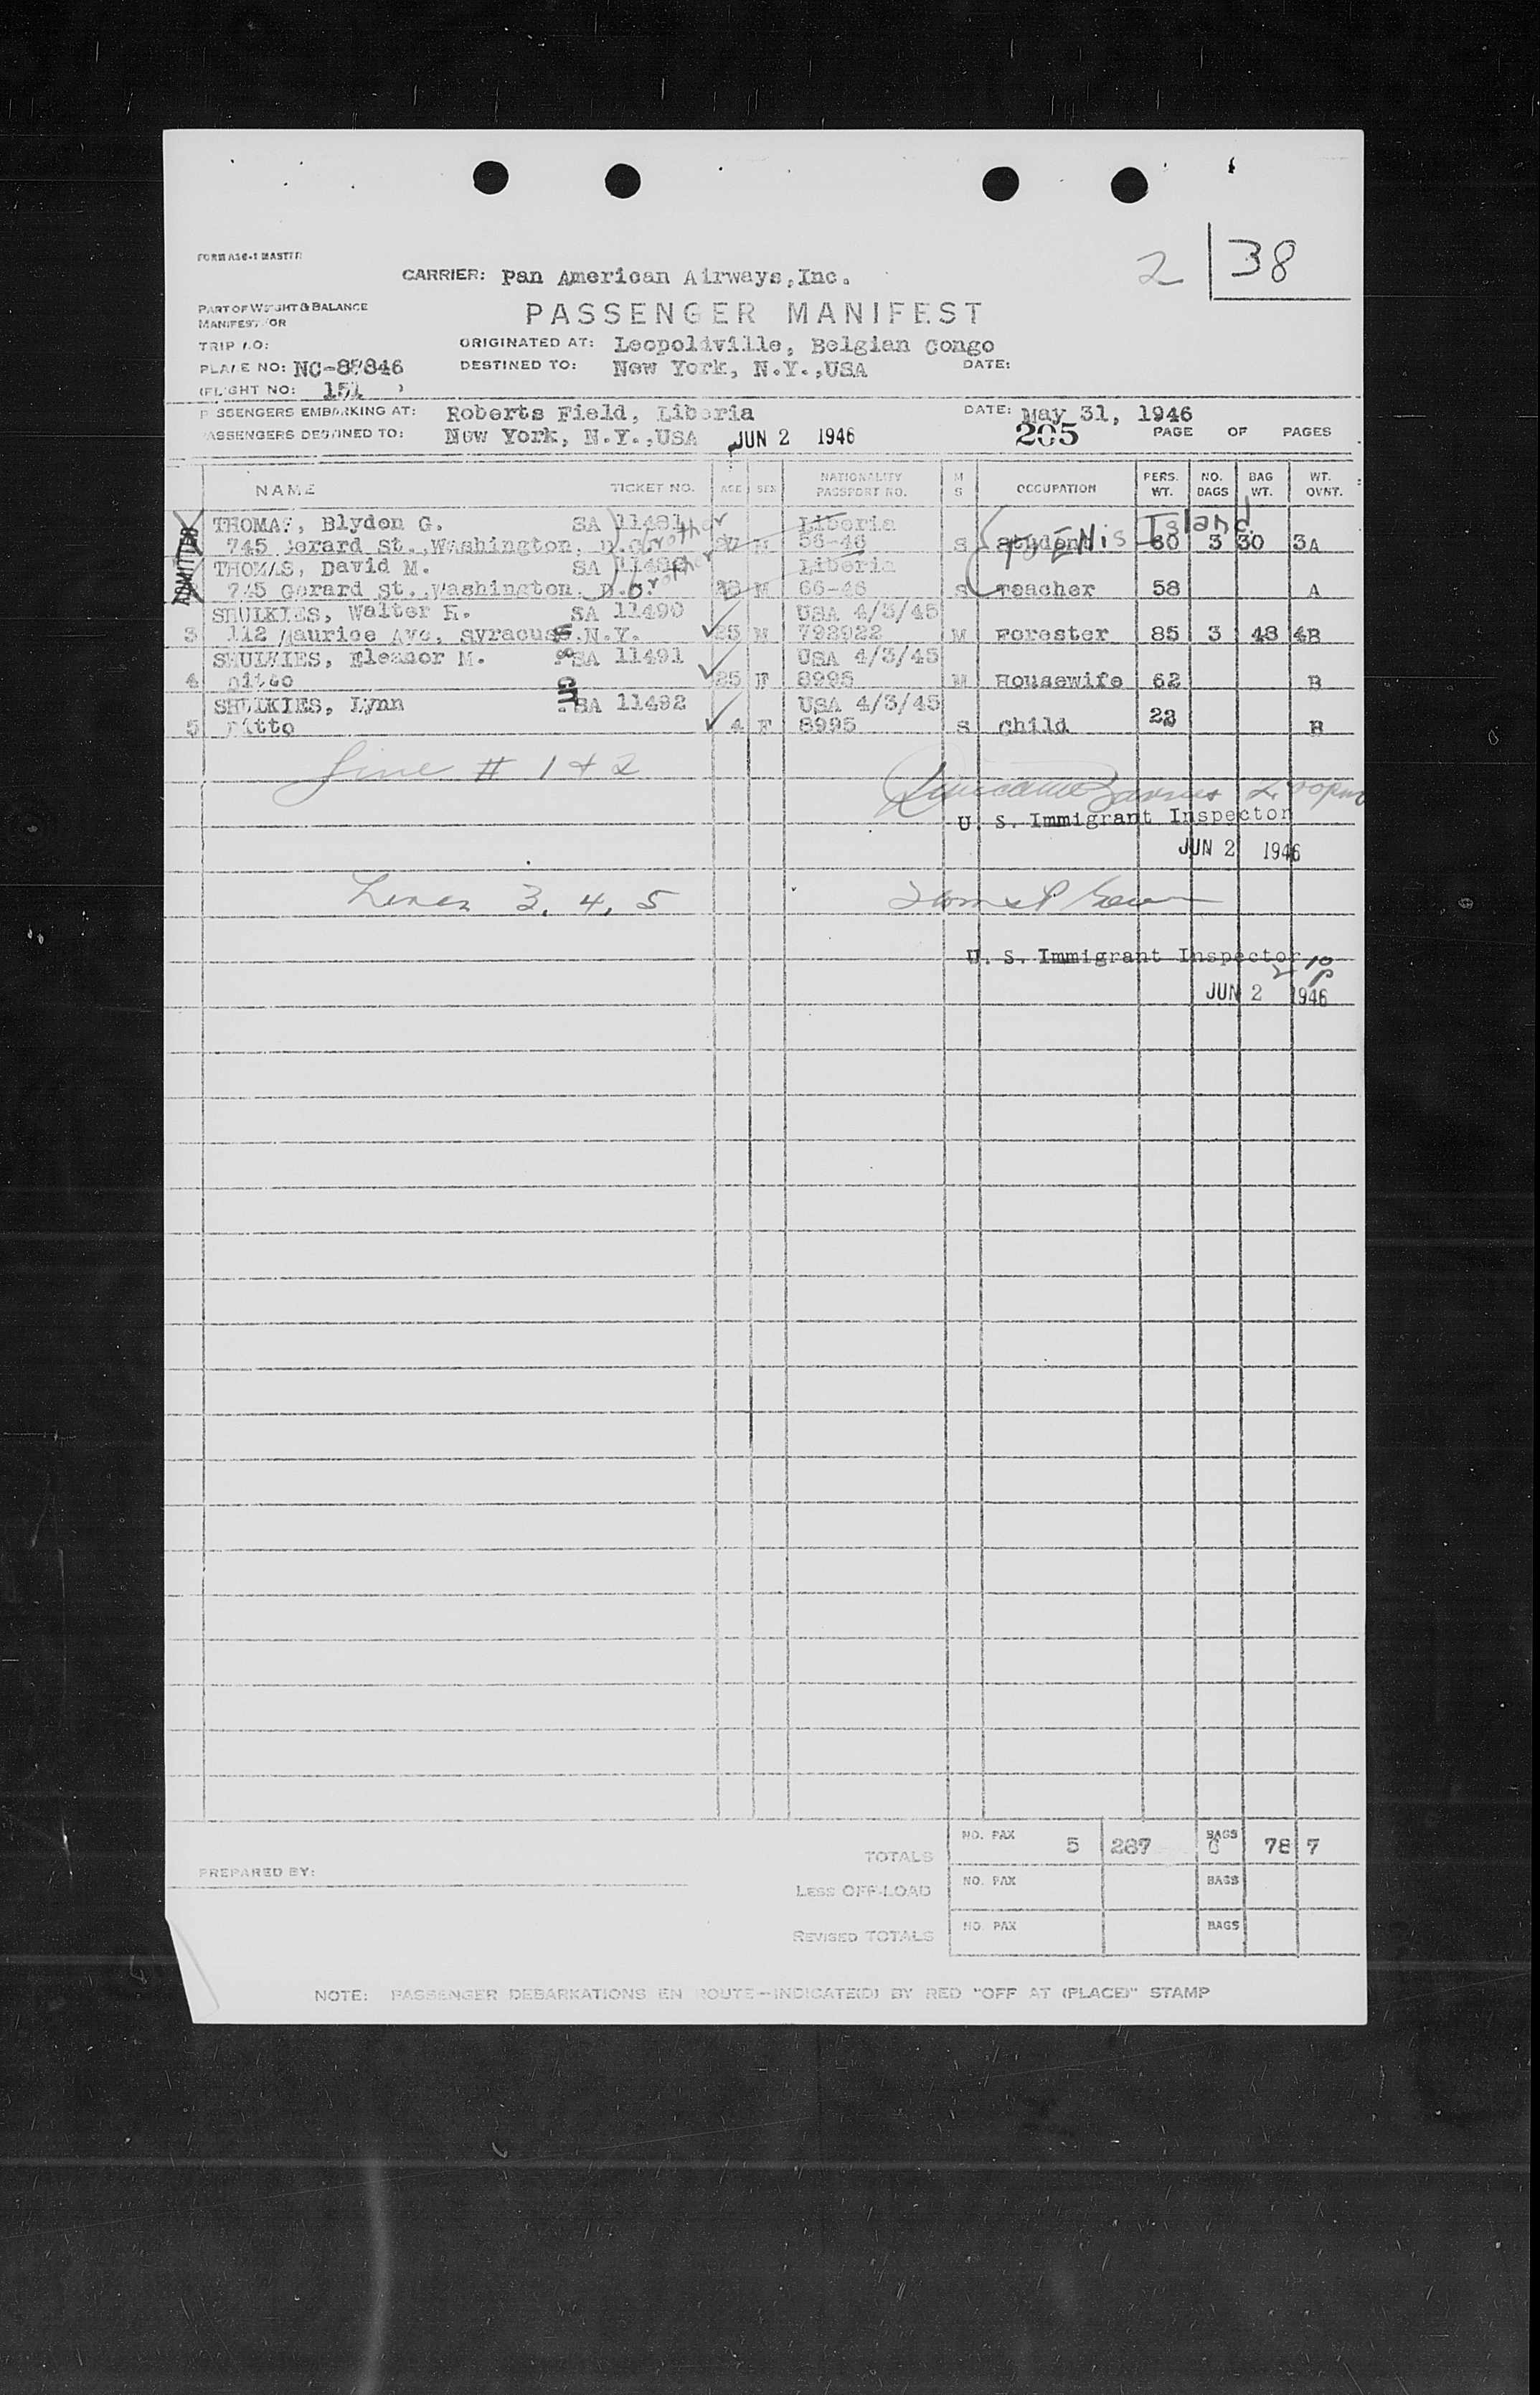 FORM ASC-1 MASTER
2 38
CARRIER: Pan American Airways, Inc.
PART OF WEIGHT & BALANCE
MANIFEST FOR
PASSENGER MANIFEST
TRIP NO:
ORIGINATED AT: Leopoldville, Belgian Congo
PLANE NO: NC-88846
DESTINED TO: New York, N.Y.,USA DATE:
(FLIGHT NO: 151 )
PASSENGERS EMBARKING AT: Roberts Field, Liberia DATE: May 31, 1946
PASSENGERS DESTINED TO: New York, N.Y.,USA JUN 2 1946 205 PAGE OF PAGES
NAME TICKET NO. AGE SEX NATIONALITY PASSPORT NO. M S OCCUPATION PERS. WT. NO. BAGS BAG WT. WT. OVNT.
ADMITTED
THOMAS, Blyden G. SA Liberia
745 Gerard St.,Washington, D.C. brother M 56-46 S To Ellis Island 60 3 30 3A
THOMAS, David M. SA Liberia
745 Gerard St.,Washington, D.C. brother M 66-46 S Teacher 58 A
SHULKIES, Walter R. SA 11490 USA 4/3/45
3 112 Maurice Ave, Syracuse,N.Y. 25 M 792922 M Forester 85 3 48 4B
SHULKIES, Eleanor M. SA 11491 USA 4/3/45
4 Ditto 25 F 8995 M Housewife 62 B
SHULKIES, Lynn SA 11492 USA 4/3/45
5 Ditto 4 F 8995 S Child 22 B
Line # 1 + 2
U. S. Immigrant Inspector
JUN 2 1946
Lines 3, 4, 5
U. S. Immigrant Inspector
JUN 2 1946
TOTALS NO. PAX 5 287 BAGS 6 78 7
PREPARED BY:
LESS OFF-LOAD NO. PAX BAGS
REVISED TOTALS NO. PAX BAGS
NOTE: PASSENGER DEBARKATIONS EN ROUTE—INDICATE(D) BY RED "OFF AT (PLACE)" STAMP